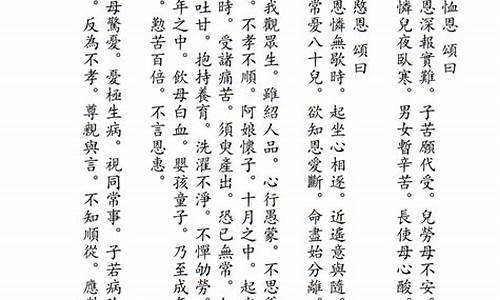 恤恩 頌曰
恩深報實難。子苦願代受。兒勞母不安
憐兒夜臥寒。男女暫辛苦。長使母心酸。
愍恩 頌曰
恩憐無歇時。起坐心相逐。近遙意與隨。
常憂八十兒。欲知恩愛斷。命盡始分離。
我觀眾生。雖紹人品。心行愚蒙。不思
。不孝不順。阿娘懷子。十月之中。起
時。受諸痛苦。須臾產出。恐已無常。
吐甘。抱持養育。洗濯不淨。不憚劬勞。
年之中。飲母白血。嬰孩童子。乃至成
。懃苦百倍。不言恩惠。
母驚憂。憂極生病。視同常事。子若病
。反為不孝。尊親與言。不知順從。應